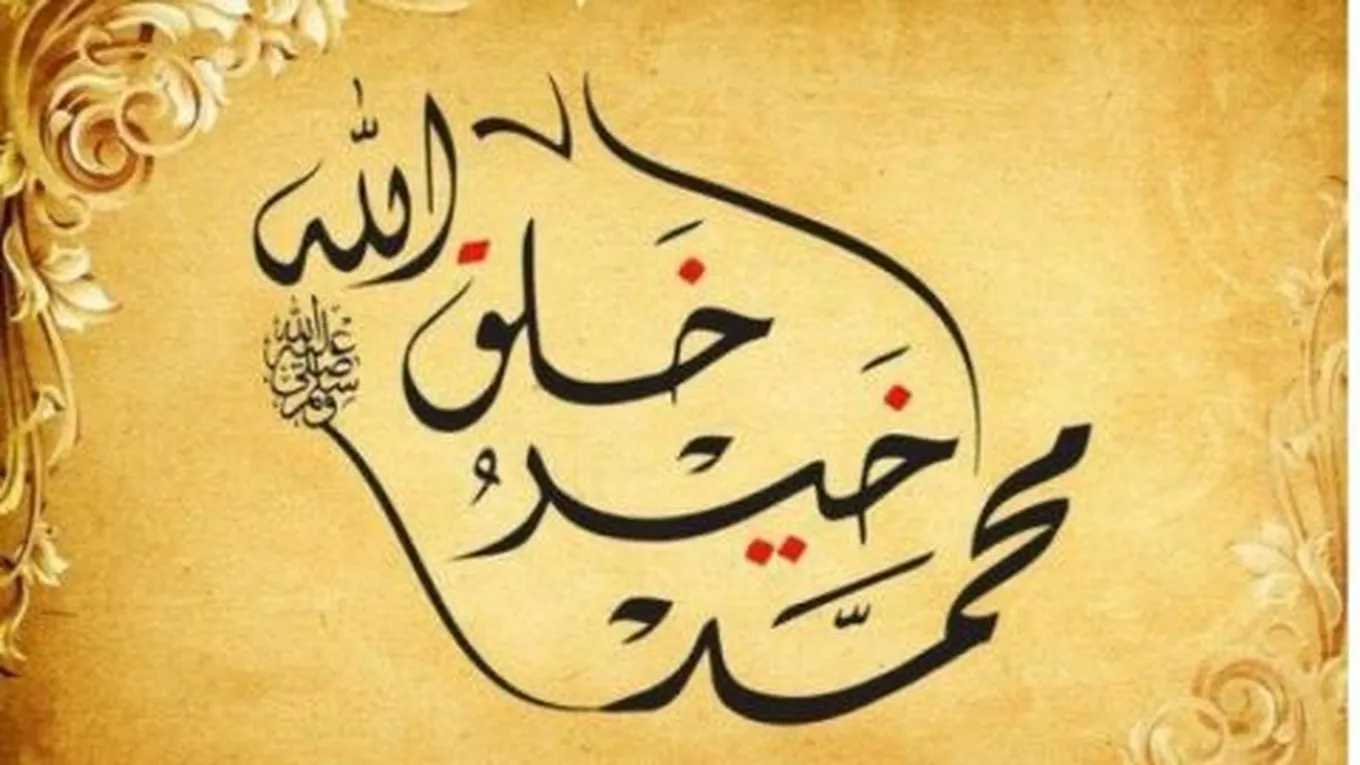 محمَّد
خيرُ
خلق
الله
صلى الله عليه وسلم